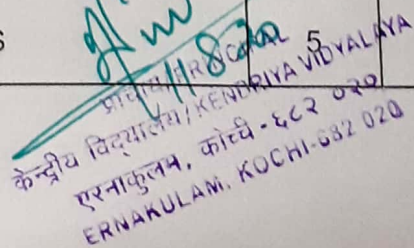 5
प्राचार्य/PRINCIPAL
केन्द्रीय विद्यालय/KENDRIYA VIDYALAYA
एरनाकुलम, कोच्ची-६८२ ०२०
ERNAKULAM, KOCHI-682 020